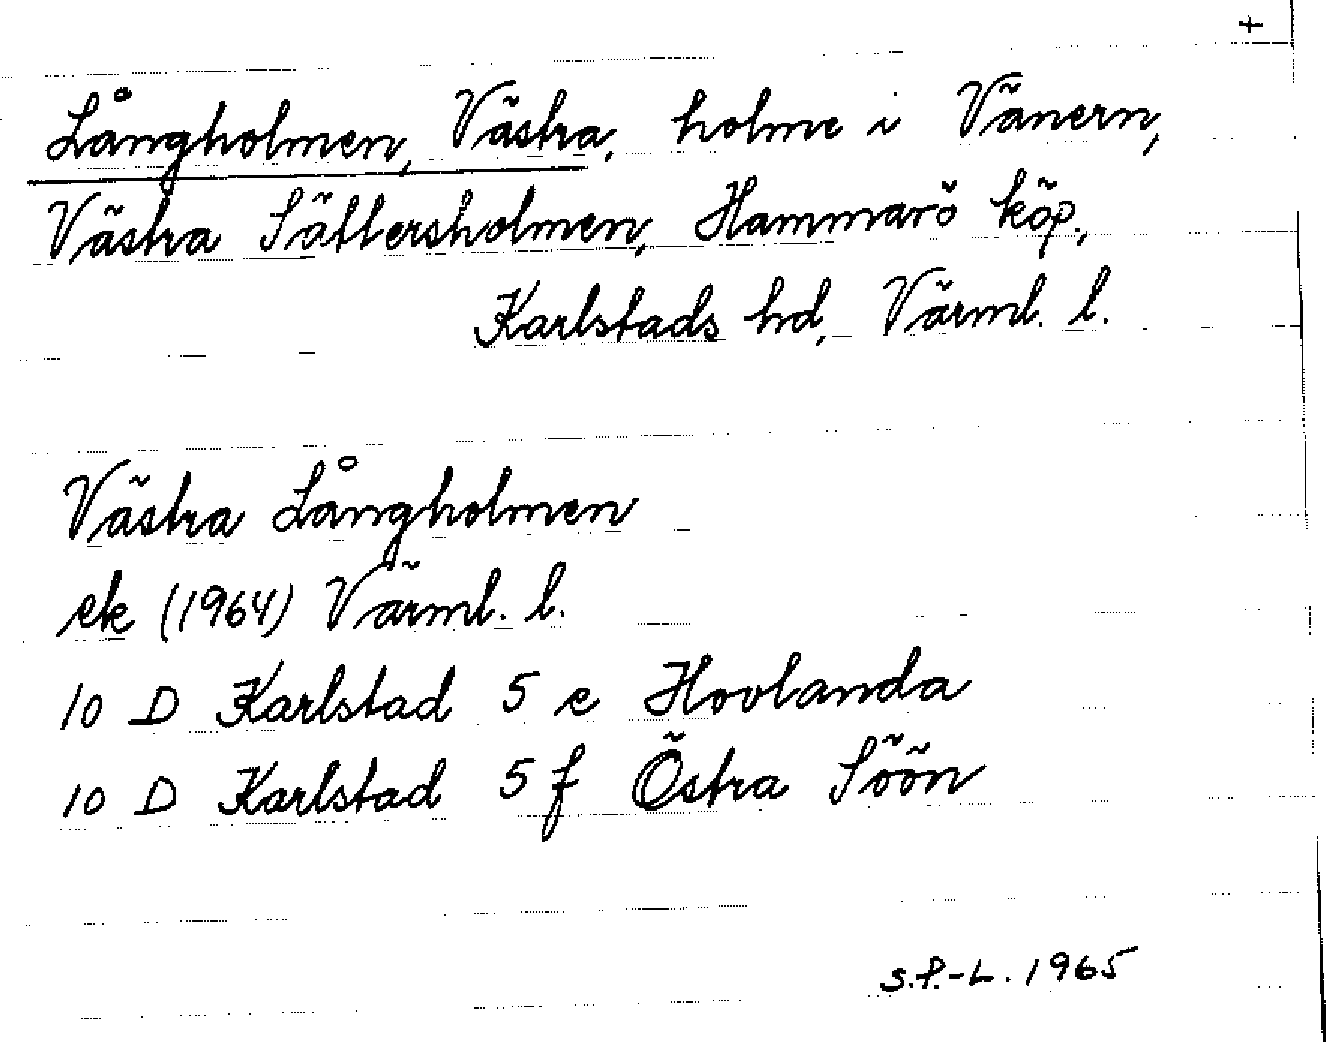 +
Långholmen, Västra, holme i Vänern,
Västra Sättersholmen, Hammarö köp.,
Karlstads hd, Värml. l.
Västra Långholmen
ek (1964) Värml. l.
10 D Karlstad 5 e Hovlanda
10 D Karlstad 5 f Östra Söön
S.P.-L. 1965